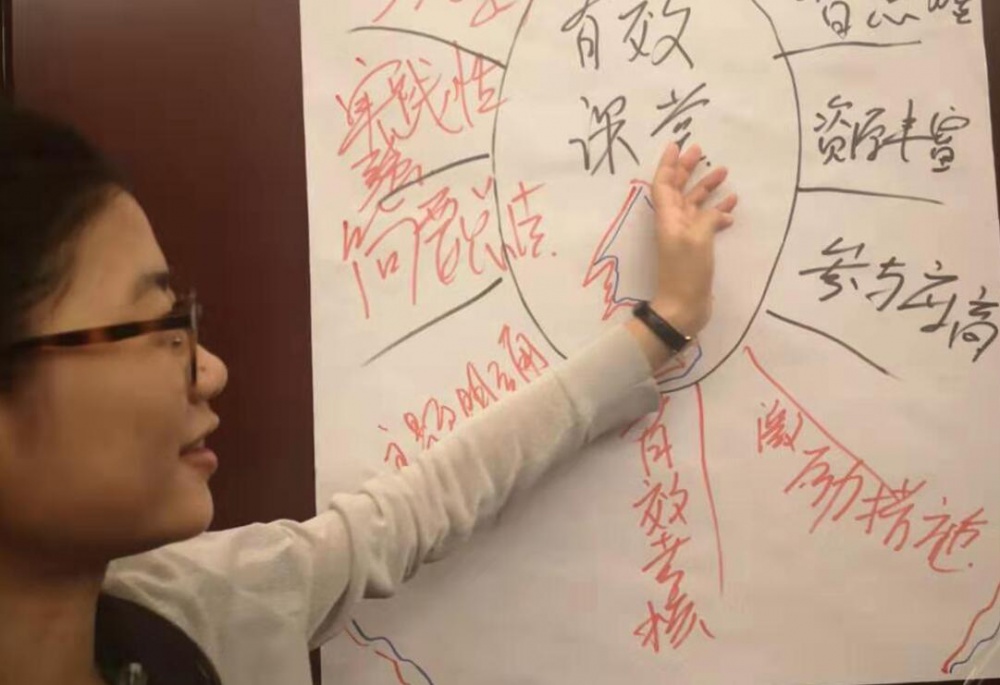 有效
课堂
实践性
强
主题明确
资源丰富
参与度高
有效考核
激励措施